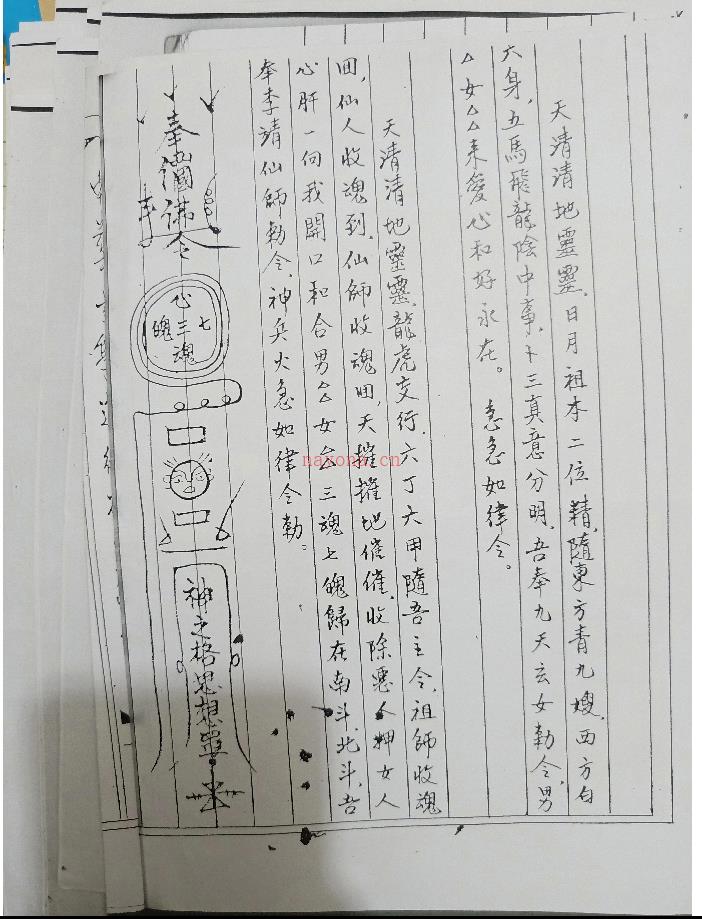 天清清地靈靈，日月祖本二位精，隨東方青九嫂，西方白
六身，五馬飛龍陰中事，卜三真意分明，吾奉九天玄女勅令，男
△女△△来愛心和好永在。急急如律令。
天清清地靈靈，龍虎交行，六丁六甲隨吾主令，祖師收魂
回，仙人收魂到，仙師收魂回，天摧摧地催催，收除惡人押女人
心肝一向我開口和合男△△女△△三魂七魄歸在南斗，北斗，吾
奉李靖仙師勅令，神兵火急如律令勅：
奉 佛令
心三魂
七
魄
神之格思想單
nayona.cn